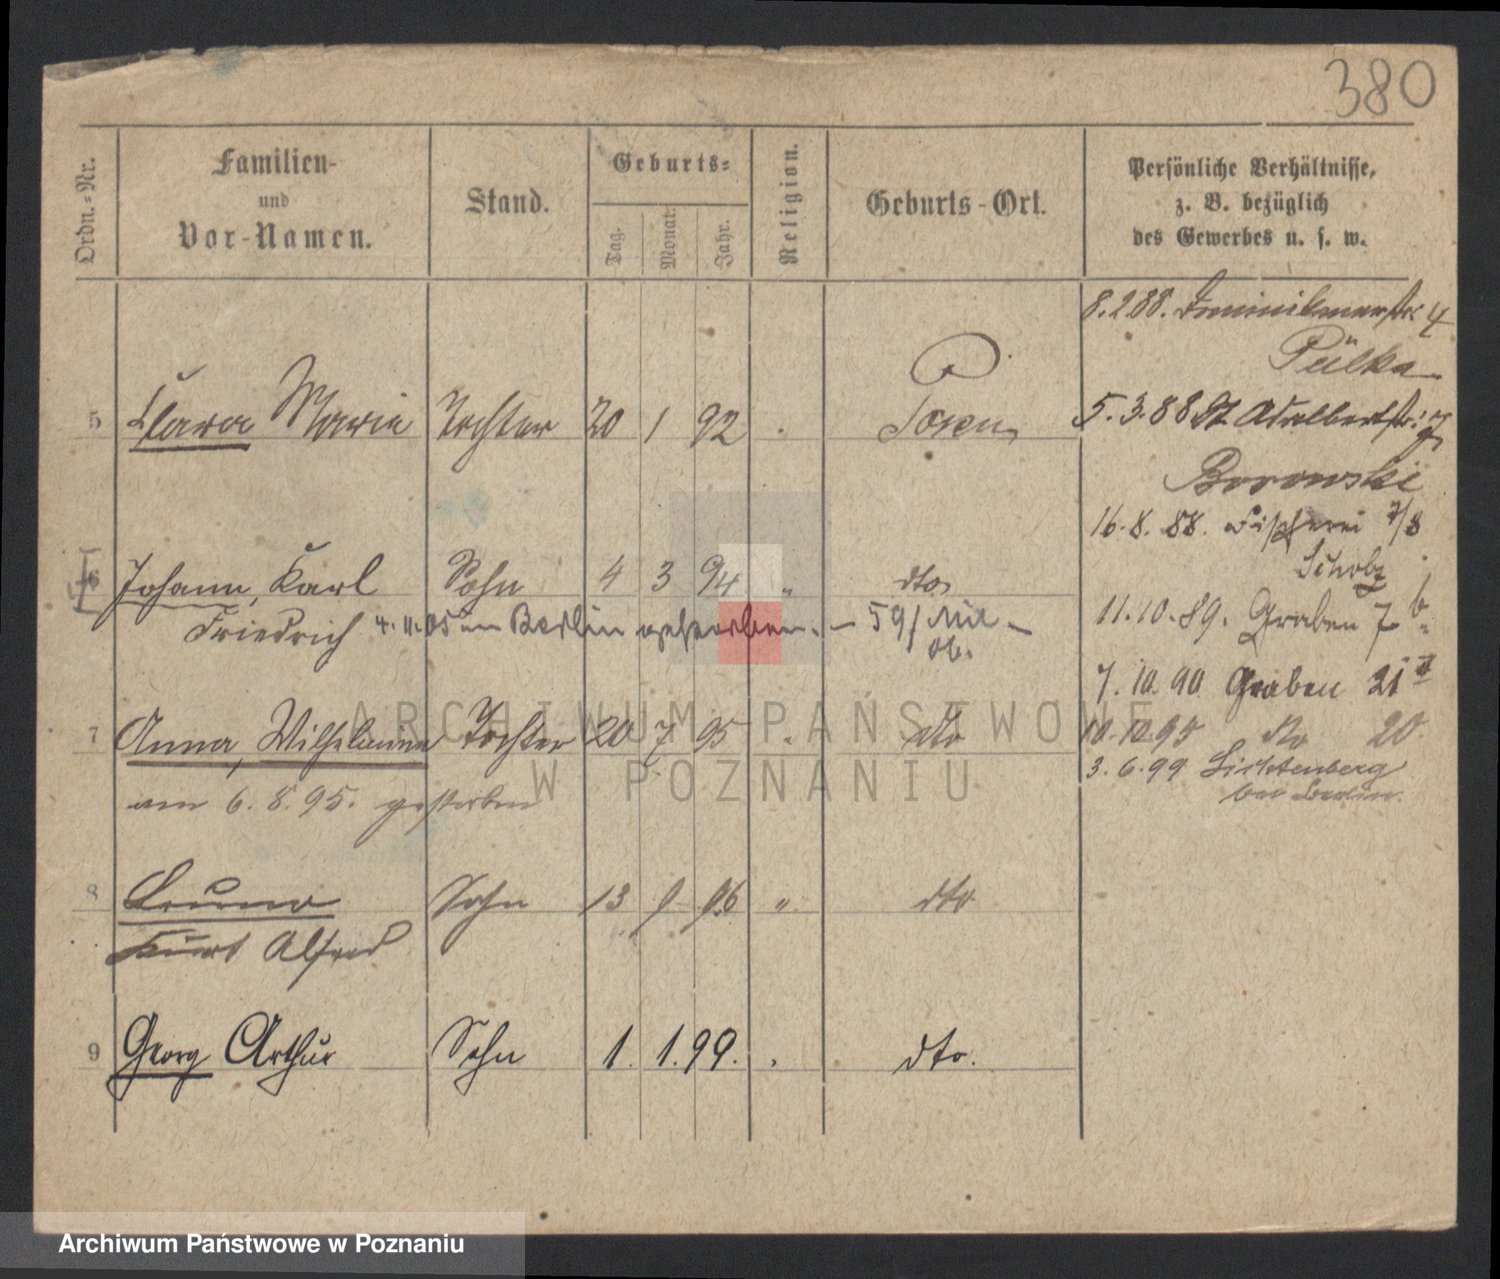 380
Ordn.-Nr.
Familien-
und
Vor-Namen.
Stand.
Geburts-
Tag.
Monat.
Jahr.
Religion.
Geburts-Ort.
Persönliche Verhältnisse,
z. B. bezüglich
des Gewerbes u. s. w.
8.2.88. Dominikanerstr 4
Pülka
5 Clara Marie Tochter 20 1 92 Posen
5.3.88 St Adalbertstr.
Borowski
16.8.88. Fischerei 7/8
Scholz
6 Johann, Karl Sohn 4 3 94 " dto
Friedrich 4.11.05 in Berlin gestorben. — 59/
11.10.89. Graben 7 b.
7.10.90 Graben 21
7 Anna, Wilhelmine Tochter 20 7 95 " dto
10.10.95 dto 20.
3.6.99 Lichtenberg
bei Berlin.
am 6.8.95. gestorben
8 Bruno Sohn 13 9 96 " dto
Kurt Alfred
9 Georg Arthur Sohn 1. 1. 99. " dto.
ARCHIWUM PAŃSTWOWE
W POZNANIU
Archiwum Państwowe w Poznaniu